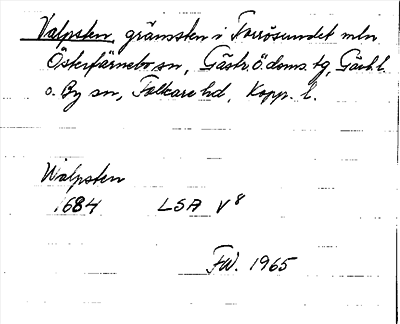 Valpsten, gränssten i Torrösundet mln
Österfärnebo sn, Gästr. ö. doms. tg, Gävleb. l.
o. By sn, Folkare hd, Kopp. l.
Walpsten
1684 LSA V 8
FW. 1965